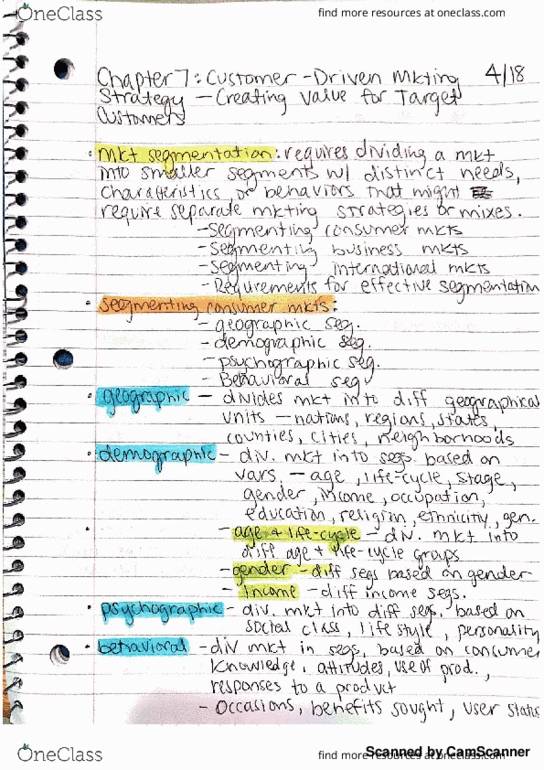 OneClass
find more resources at oneclass.com
Chapter 7: Customer-Driven Mkting 4/18
Strategy - Creating Value for Target
Customers
• mkt segmentation: requires dividing a mkt
into smaller segments w/ distinct needs,
characteristics or behaviors that might
require separate mkting strategies or mixes.
- Segmenting consumer mkts
- Segmenting business mkts
- Segmenting international mkts
- Requirements for effective segmentation
• segmenting consumer mkts:
- geographic seg.
- demographic seg.
- psychographic seg.
- Behavioral seg
• geographic - divides mkt into diff geographical
units - nations, regions, states,
counties, cities, neighborhoods
• demographic - div. mkt into segs. based on
vars. - age, life-cycle, stage,
gender, income, occupation,
education, religion, ethnicity, gen.
- age + life-cycle - div. mkt into
diff age + life-cycle groups
- gender - diff segs based on gender
- Income - diff income segs.
• psychographic - div. mkt into diff segs. based on
social class, life style, personality
• behavioral - div mkt in segs. based on consumer
knowledge, attitudes, use of prod.,
responses to a product
- Occasions, benefits sought, user status
OneClass
find more resources at oneclass.com
Scanned by CamScanner